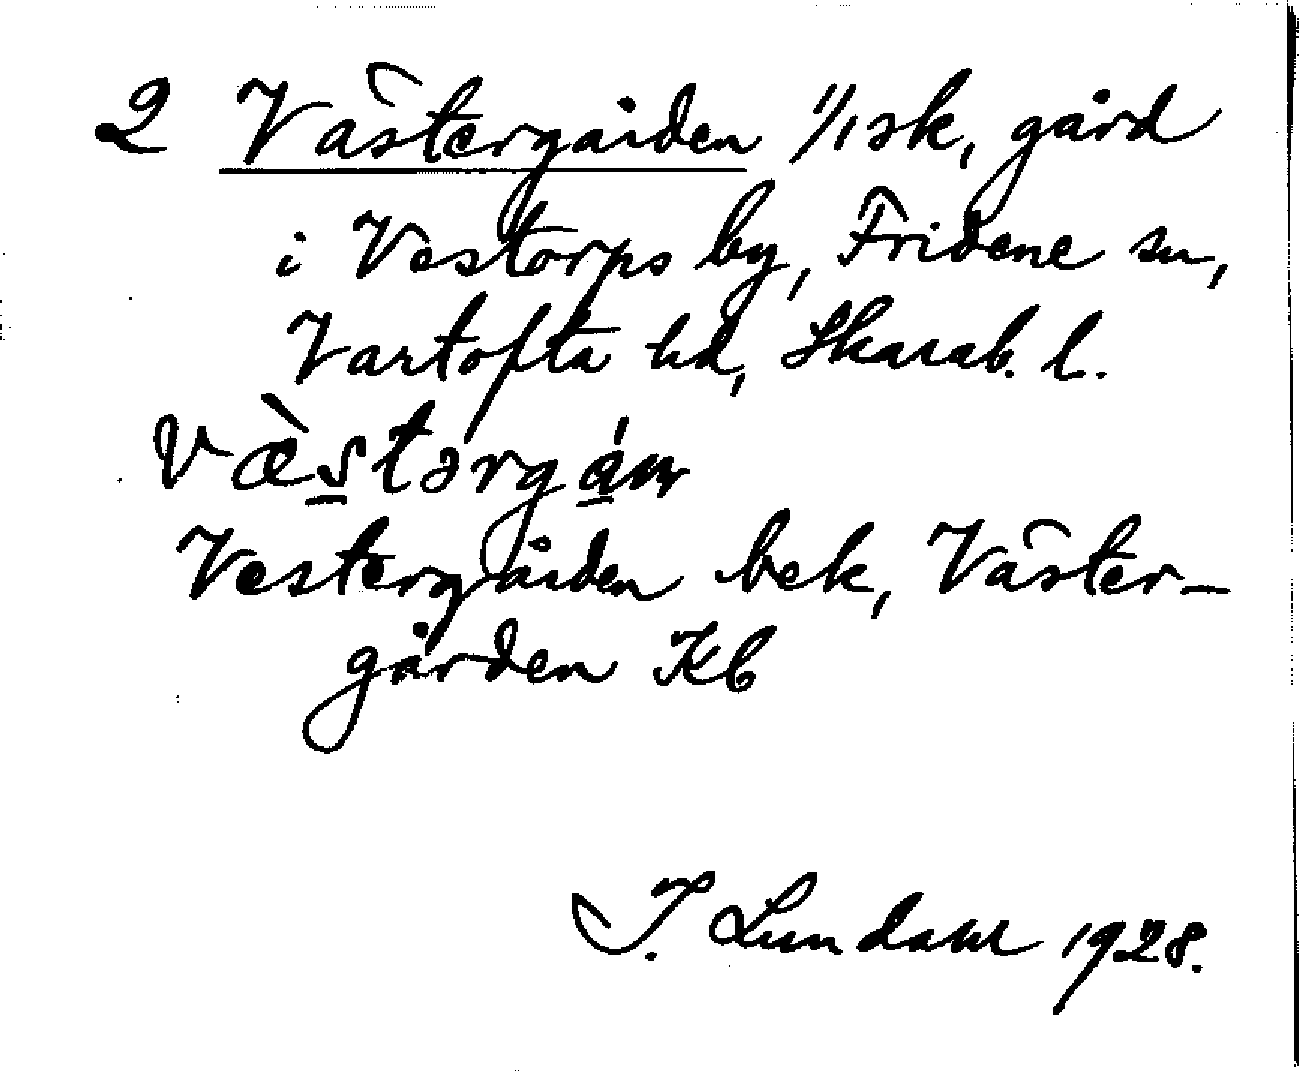 2 Västergården 1/1 sk, gård
i Vestorps by, Fridene sn,
Vartofta hd, Skarab. l.
Væ̀stərgán
Vestergården bek, Väster-
gården Kb
I. Lundahl 1928.